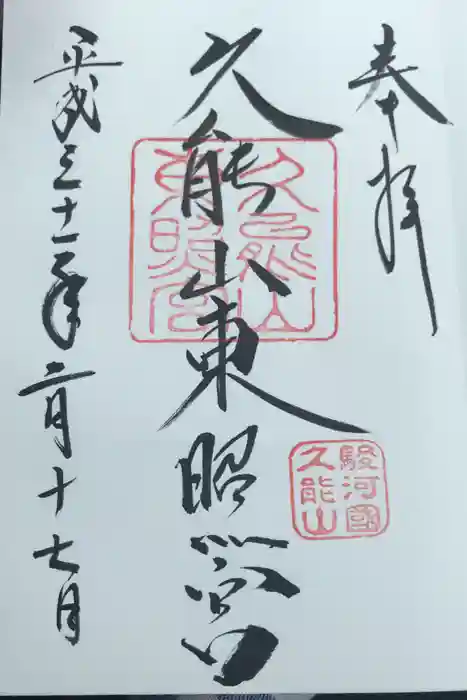 奉拝
久能山東照宮
久能山
東照宮
駿河國
久能山
平成三十一年二月十七日